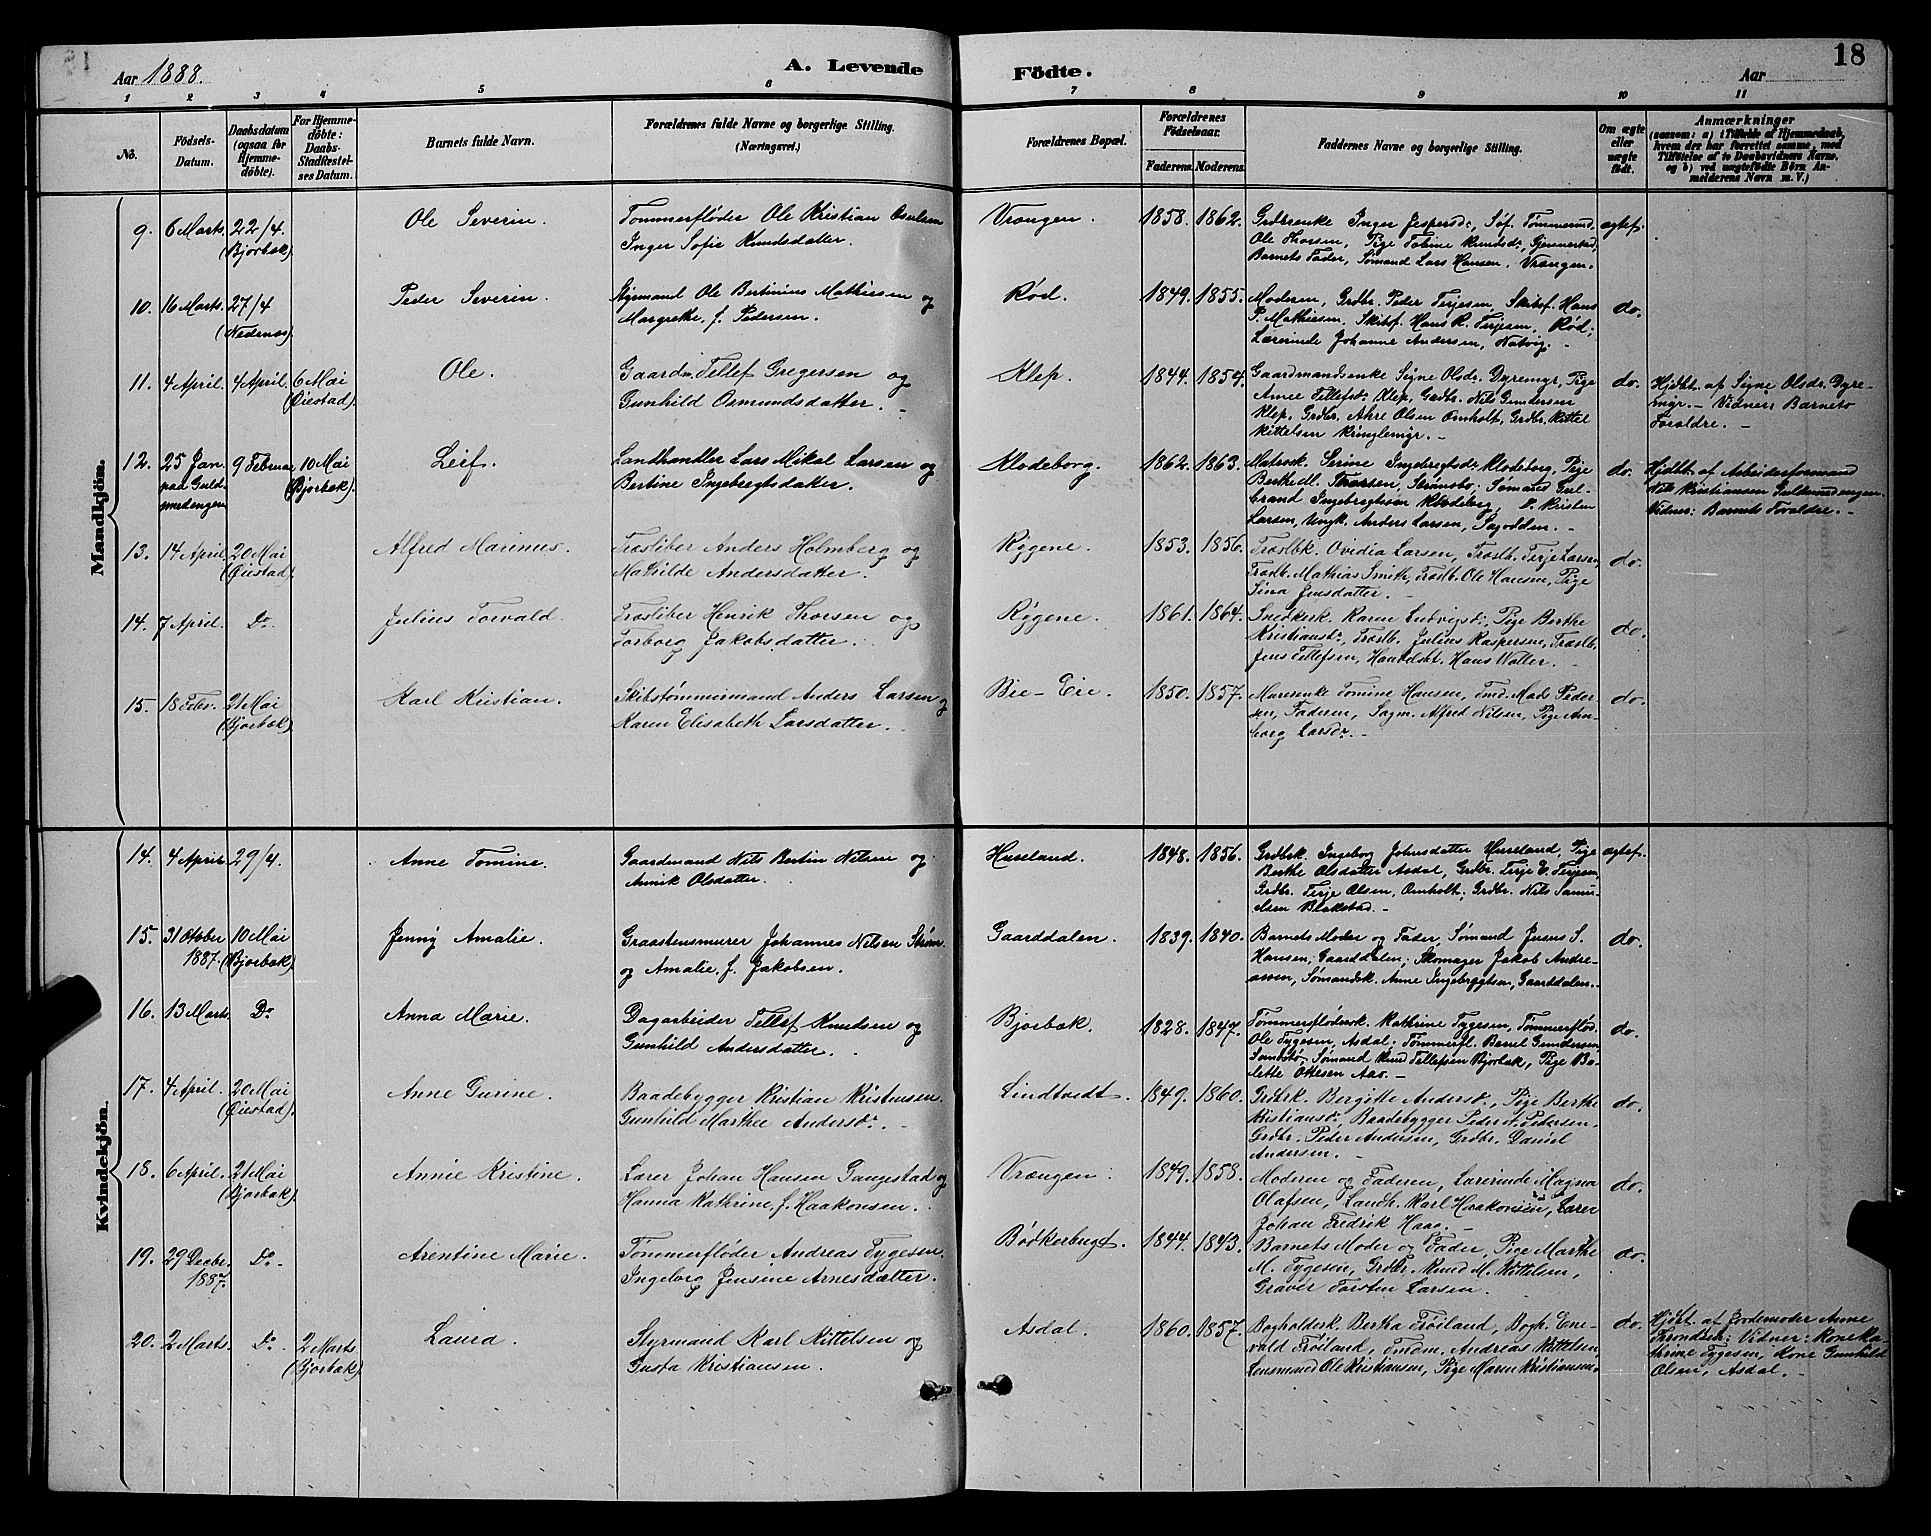 Aar 1888.
A. Levende Födte.
Aar
18
1 2 3 4 5 6 7 8 9 10 11
No.
Födsels-Datum.
Daabsdatum (ogsaa for Hjemmedöbte).
For Hjemmedöbte: Daabs-Stadfæstelses Datum.
Barnets fulde Navn.
Forældrenes fulde Navne og borgerlige Stilling.
(Næringsvei.)
Forældrenes Bopæl.
Forældrenes Födselsaar.
Faderens. Moderens.
Faddernes Navne og borgerlige Stilling.
Om ægte eller uægte född.
Anmærkninger
(saasom: a) i Tilfælde af Hjemmedaab, hvem der har forrettet samme, med Tilföielse af to Daabsvidners Navne, og b) ved uægtefödte Börn Anmelderens Navn m. V.)
Mandkjön.
9. 6 Marts. 22/4. (Bjorbæk). Ole Severin. Tømmerfløder Ole Kristian Osulsen
Inger Sofie Knudsdatter.
Vrængen. 1858. 1862. Grdbrenke Inger Jespersd:, Søf. Tømmermd.
Ole Thorsen, Pige Tobine Knudsd:, Gjennerstad;
Barnets Fader, Sømand Lars Hansen, Vrængen.
ægtef.
10. 16 Marts. 27/4 (Nedenæs). Peder Severin. Styrmand Ole Bertinius Mathiesen og
Margrethe, f. Pedersen.
Rød. 1849. 1855. Moderen, Grdbr. Peder Terjesen, Skibsf. Hans
P. Mathiesen, Skibsf. Hans R. Terjesen, Rød;
Lærerinde Johanne Andersen, Natvig.
do.
11. 4 April. 4 April. 6 Mai (Øiestad). Ole. Gaardm. Tellef Gregersen og
Gunhild Osmundsdatter.
Klep. 1844. 1854. Gaardmandsenke Signe Olsd: Dyremyr, Pige
Anne Tellefsd: Klep, Grdbr. Nils Gundersen
Klep, Grdbr. Ahre Olsen Omholt, Grdbr. Kittel
Kittelsen Kringlemyr.
do.
Hjdbt. af Signe Olsdr. Dyre-
myr. Vidner: Barnets
Forældre.
12. 25 Jan. paa Guld-
smedengen 9 Februar 10 Mai (Bjorbæk). Leif. Landhandler Lars Mikal Larsen og
Bertine Ingebregtsdatter.
Klodeborg. 1862. 1863. Matrosk. Serine Ingebregtsd: Klodeborg, Pige
Larsen, Strømsbo; Sømand Gul-
brand Ingebregtsen Klodeborg, Kristen
Larsen, Ungk. Anders Larsen,
do.
Hjdbt. af Arbeiderformand
Nils Kristiansen Guldsmedengen.
Vidner: Barnets Forældre.
13. 14 April. 20 Mai (Øiestad). Alfred Marinus. Træsliber Anders Holmberg og
Mathilde Andersdatter.
Rygene. 1853. 1856. Træslbk. Ovidia Larsen, Træslb. Terje Larsen,
Træslb. Mathias Smith, Træslb. Ole Hansen, Pige
Sina Jensdatter.
do.
14. 7 April. Do. Julius Torvald. Træsliber Henrik Thorsen og
Torborg Jakobsdatter.
Rygene. 1861. 1864. Snedkerk. Karen Ludvigsd:, Pige Berthe
Kristiansd:, Træslb. Julius Kaspersen, Træslb.
Jens Tellefsen, Haandsbt. Hans Woller.
do.
15. 18 Febr. 21 Mai (Bjorbæk). Karl Kristian. Skibstømmermand Anders Larsen og
Karen Elisabeth Larsdatter.
Bie-Eie. 1850. 1857. Tomine Hansen, Tmd. Mads Peder-
sen, Faderen, Sagm. Alfred Nilsen, Pige An-
borg Larsd:.
do.
Kvindekjön.
14. 4 April. 29/4. Anne Tomine. Gaardmand Nils Bertin Nilsen og
Annik Olsdatter.
Huseland. 1848. 1856. Grdbrk. Ingebor Johnsdatter Huseland, Pige
Berthe Olsdatter Asdal, Grdbr. Terje E. Terjesen,
Grdbr. Terje Olsen, Omholt; Grdbr. Nils Samu-
elsen Blakstad.
ægtef.
15. 31 Otober
1887. 10 Mai (Bjorbæk). Jenny Amalie. Graastensmurer Johannes Nilsen Strøm
og Amalie, f. Jakobsen.
Gaarddalen. 1839. 1840. Barnets Moder og Fader, Sømand Jens S.
Hansen, Gaarddalen; Skomager Jakob Andre-
assen, Sømandsk. Anne Ingebregtsen, Gaarddalen.
do.
16. 13 Marts. Do. Anna Marie. Dagarbeider Tellef Knudsen og
Gunhild Andersdatter.
Bjorbæk. 1828. 1847. Tømmerfløderk. Kathrine Tygesen, Tømmerflød.
Ole Tygesen, Asdal; Tømmerfl. Barel Gundersen
Sømand Knud Tellefsen Bjorbæk, Pige Bo-
lette Ottesen Aas.
do.
17. 4 April. 20 Mai (Øiestad). Anne Gurine. Baadebygger Kristian Kristensen.
Gunhild Marthee Andersd:.
Lindtvedt. 1849. 1860. Grdbrk. Bergitte Andersd:, Pige Berthe
Kristiansd:, Baadebygger Peder N. Pedersen.
Grdbr. Peder Andersen, Grdbr. Daniel
Andersen.
do.
18. 6 April. 21 Mai (Bjorbæk). Annie Kristine. Lærer Johan Hansen Gangestad og
Hanna Kathrine, f. Haakonsen.
Vrængen. 1849. 1858. Moderen og Faderen, Lærerinde Magna
Olafsen, Landh. Karl Haakonsen, Lærer
Johan Fredrik Haas.
do.
19. 29 Decbr.
1887. Do. Arentine Marie. Tømmerfløder Andreas Tygesen.
Ingeborg Jensine Arnesdatter.
Bødkerbugt. 1844. 1843. Barnets Moder og Fader, Pige Marthe
M. Tygesen, Grdbr. Knud M. Kittelsen,
Graver Torsten Larsen.
do.
20. 2 Marts. Do. 2 Marts (Bjorbæk). Laura. Styrmand Karl Kittelsen og
Gusta Kristiansen.
Asdal. 1860. 1857. Bogholderk. Bertha Frøiland, Bogh. Ene-
vald Frøiland, Tmdm. Andreas Kittelsen,
Lensmand Ole Kristiansen, Pige Maren Kristiansen.
do.
Hjdbt. af Jordemoder Anne
Trondsen; Vidner: Kone Ka-
thrine Tygesen, Kone Gunhild
Olsen, Asdal.